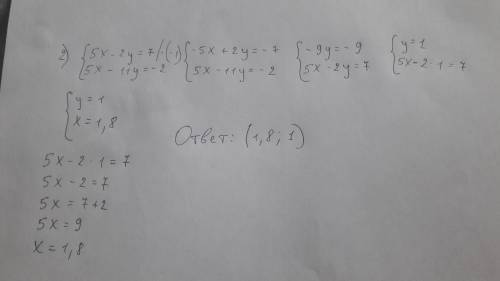 2) { 5x - 2y = 7 /·(-1) { -5x + 2y = -7 { -9y = -9 { y = 1
5x - 11y = -2 5x - 11y = -2 5x - 2y = 7 5x - 2·1 = 7
{ y = 1
x = 1,8
Ответ: (1,8; 1)
5x - 2·1 = 7
5x - 2 = 7
5x = 7+2
5x = 9
x = 1,8